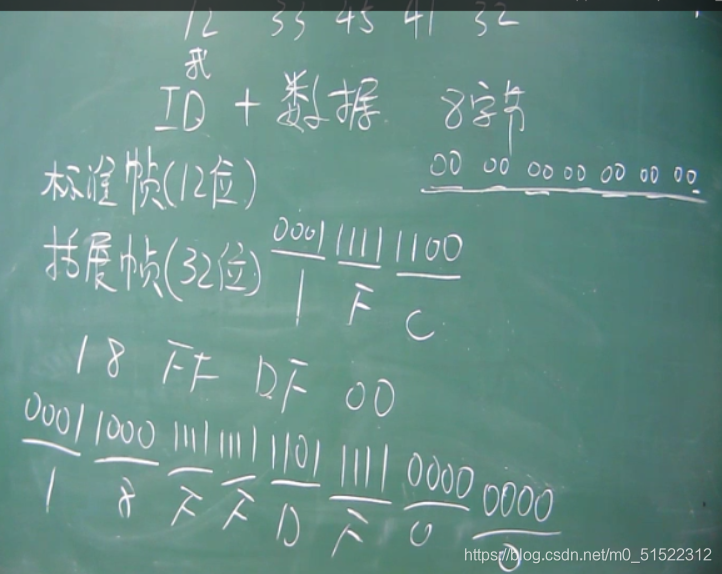 12 33 45 41 32
我
ID + 数据 8字节
00 00 00 00 00 00 00
标准帧(12位)
0001 1111 1100
括展帧(32位)
1 F C
18 FF DF 00
0001 1000 1111 1111 1101 1111 0000 0000
1 8 F F D F 0 0
https://blog.csdn.net/m0_51522312